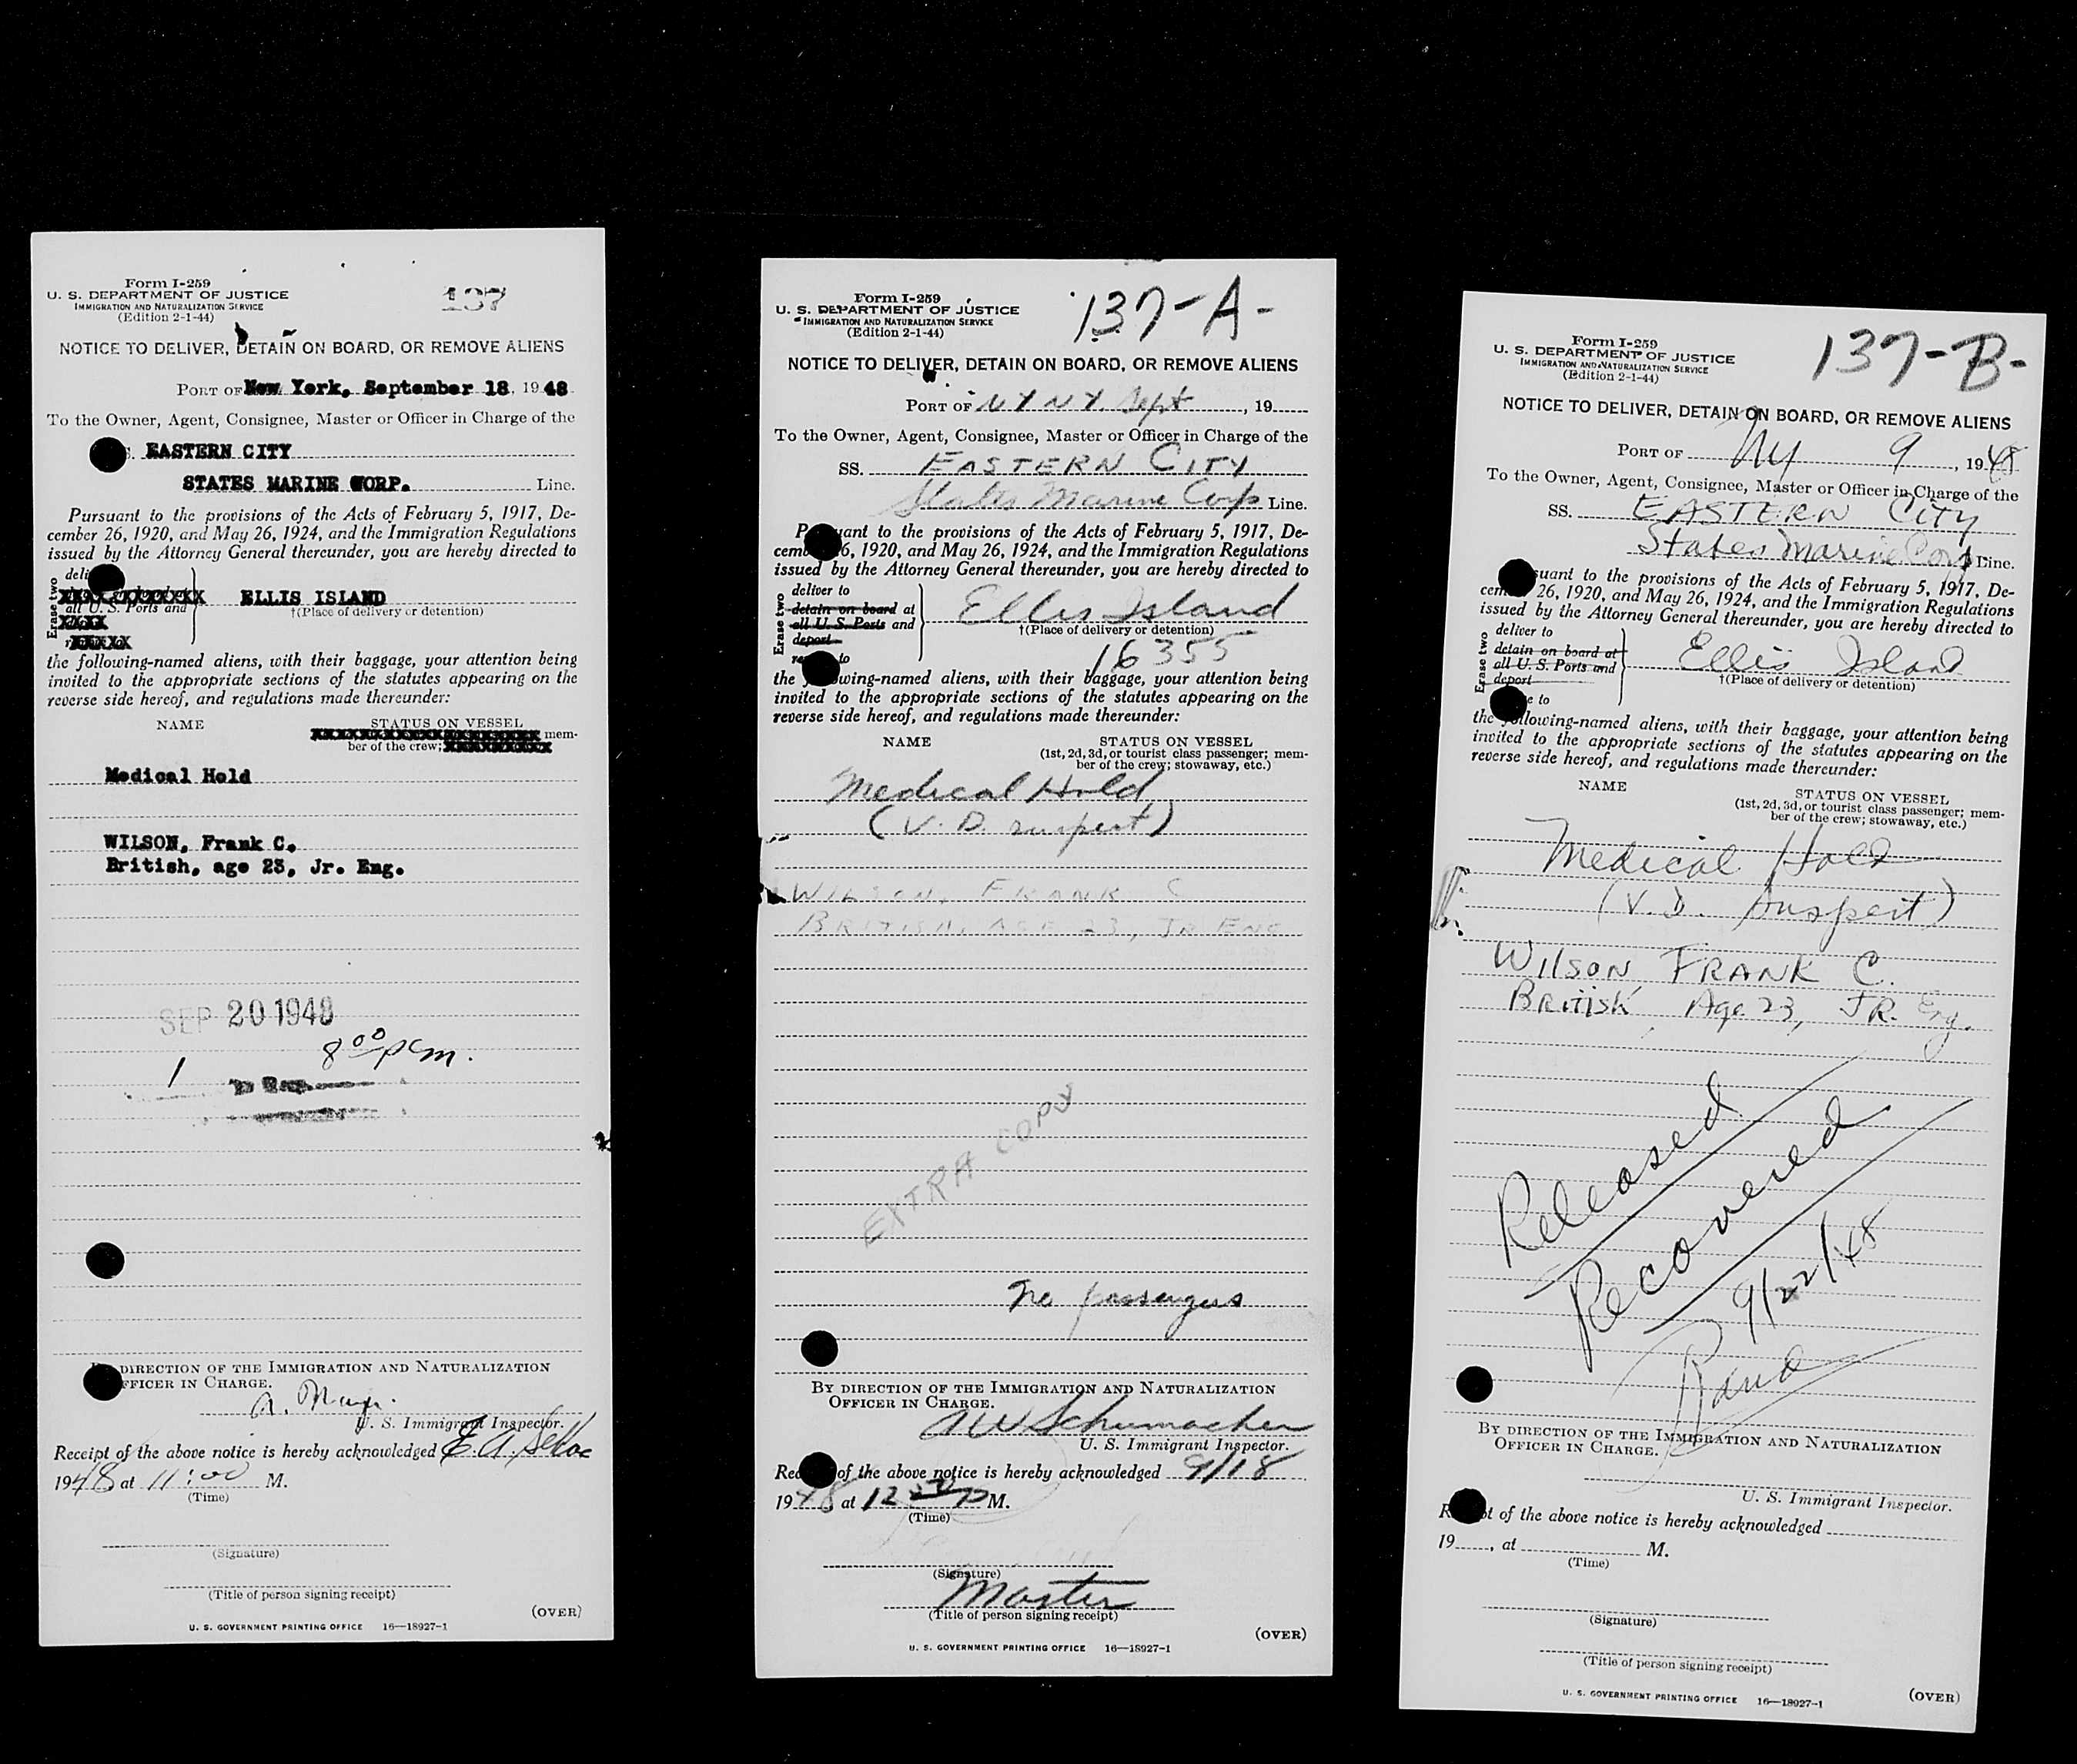 Form I-259
U. S. DEPARTMENT OF JUSTICE
IMMIGRATION AND NATURALIZATION SERVICE
(Edition 2-1-44)
137
NOTICE TO DELIVER, DETAIN ON BOARD, OR REMOVE ALIENS
PORT OF New York, September 18, 1948
To the Owner, Agent, Consignee, Master or Officer in Charge of the
EASTERN CITY
STATES MARINE CORP. Line.
Pursuant to the provisions of the Acts of February 5, 1917, De-
cember 26, 1920, and May 26, 1924, and the Immigration Regulations
issued by the Attorney General thereunder, you are hereby directed to
Erase two
all U. S. Ports and
ELLIS ISLAND
†(Place of delivery or detention)
the following-named aliens, with their baggage, your attention being
invited to the appropriate sections of the statutes appearing on the
reverse side hereof, and regulations made thereunder:
NAME STATUS ON VESSEL
XXXXXXXXXXXXXXXXXXXX mem-
ber of the crew; XXXXXXXXX
Medical Hold
WILSON, Frank C.
British, age 23, Jr. Eng.
SEP 20 1948
8 00 pm.
1
BY DIRECTION OF THE IMMIGRATION AND NATURALIZATION
OFFICER IN CHARGE.
U. S. Immigrant Inspector.
Receipt of the above notice is hereby acknowledged E. A.
1948 at 11:00 M.
(Time)
(Signature)
(Title of person signing receipt)
(OVER)
U. S. GOVERNMENT PRINTING OFFICE 16—18927-1
Form I-259
U. S. DEPARTMENT OF JUSTICE
IMMIGRATION AND NATURALIZATION SERVICE
(Edition 2-1-44)
137-A-
NOTICE TO DELIVER, DETAIN ON BOARD, OR REMOVE ALIENS
PORT OF N Y N Y. Sept, 19
To the Owner, Agent, Consignee, Master or Officer in Charge of the
SS. EASTERN CITY
States Marine Corp Line.
Pursuant to the provisions of the Acts of February 5, 1917, De-
cember 26, 1920, and May 26, 1924, and the Immigration Regulations
issued by the Attorney General thereunder, you are hereby directed to
Erase two
deliver to
detain on board at
all U. S. Ports and
deport
to
Ellis Island
†(Place of delivery or detention)
16355
the following-named aliens, with their baggage, your attention being
invited to the appropriate sections of the statutes appearing on the
reverse side hereof, and regulations made thereunder:
NAME STATUS ON VESSEL
(1st, 2d, 3d, or tourist class passenger; mem-
ber of the crew; stowaway, etc.)
Medical Hold
(V. D. suspect)
WILSON, FRANK C
BRITISH, AGE 23, JR ENG
EXTRA COPY
No passengers
BY DIRECTION OF THE IMMIGRATION AND NATURALIZATION
OFFICER IN CHARGE.
A W Schumacher
U. S. Immigrant Inspector.
Receipt of the above notice is hereby acknowledged 9/18
1948, at 12 P M.
(Time)
(Signature)
Master
(Title of person signing receipt)
(OVER)
U. S. GOVERNMENT PRINTING OFFICE 16—18927-1
Form I-259
U. S. DEPARTMENT OF JUSTICE
IMMIGRATION AND NATURALIZATION SERVICE
(Edition 2-1-44)
137-B-
NOTICE TO DELIVER, DETAIN ON BOARD, OR REMOVE ALIENS
PORT OF NY 9, 1948
To the Owner, Agent, Consignee, Master or Officer in Charge of the
SS. EASTERN CITY
States Marine Corp Line.
Pursuant to the provisions of the Acts of February 5, 1917, De-
cember 26, 1920, and May 26, 1924, and the Immigration Regulations
issued by the Attorney General thereunder, you are hereby directed to
Erase two
deliver to
detain on board at
all U. S. Ports and
deport
to
Ellis Island
†(Place of delivery or detention)
the following-named aliens, with their baggage, your attention being
invited to the appropriate sections of the statutes appearing on the
reverse side hereof, and regulations made thereunder:
NAME STATUS ON VESSEL
(1st, 2d, 3d, or tourist class passenger; mem-
ber of the crew; stowaway, etc.)
Medical Hold
(V. D. Suspect)
WILSON FRANK C.
British Age 23, JR. Eng.
Released
Recovered
9/22/48
BY DIRECTION OF THE IMMIGRATION AND NATURALIZATION
OFFICER IN CHARGE.
U. S. Immigrant Inspector.
Receipt of the above notice is hereby acknowledged
19, at M.
(Time)
(Signature)
(Title of person signing receipt)
(OVER)
U. S. GOVERNMENT PRINTING OFFICE 16—18927-1